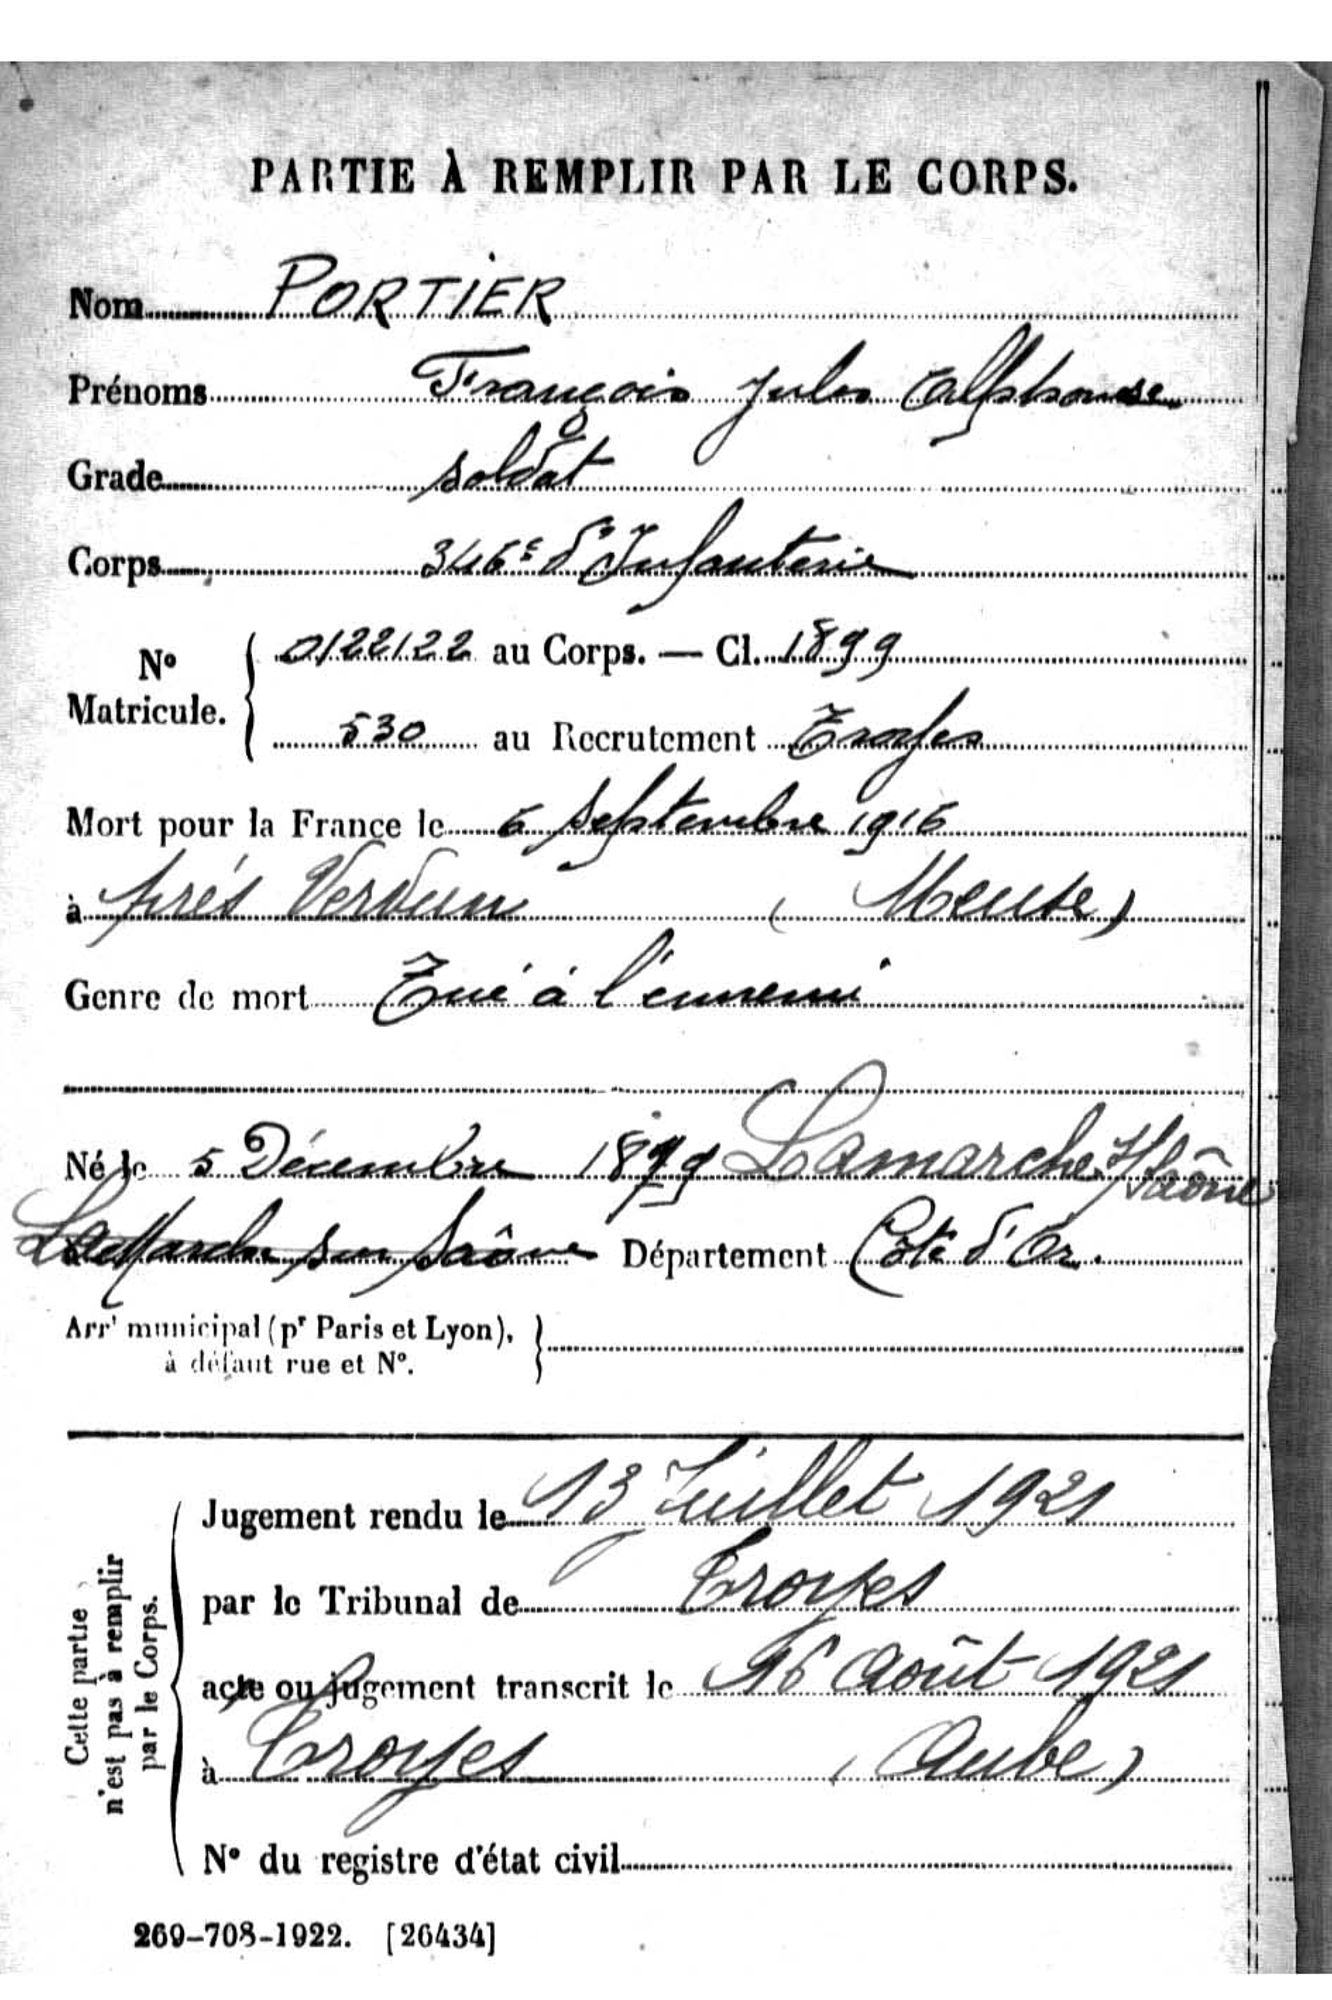 PARTIE À REMPLIR PAR LE CORPS.
Nom PORTIER
Prénoms François Jules Alphonse
Grade soldat
Corps 346e d'Infanterie
No Matricule. { 0122122 au Corps. — Cl. 1899
530 au Recrutement Troyes
Mort pour la France le 6 septembre 1916
à prés Verdun (Meuse)
Genre de mort Tué à l'ennemi
Né le 5 Décembre 1879 Lamarche s/Saône
LaMarche sur Saône Département Côte d'Or.
Arrt municipal (pr Paris et Lyon), }
à défaut rue et No.
Cette partie
n'est pas à remplir
par le Corps.
Jugement rendu le 13 Juillet 1921
par le Tribunal de Troyes
acte ou jugement transcrit le 16 Août 1921
à Troyes (Aube)
No du registre d'état civil
269-708-1922. [26434]